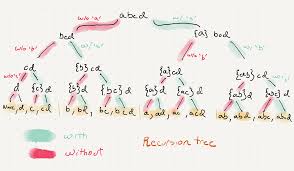 abcd
w/o 'a'
w/ 'a'
bcd
{a} bcd
w/o 'b'
w/ 'b'
w/o 'b'
w/ 'b'
cd
{b} cd
{a} cd
{ab} cd
w/o 'c'
d
{c} d
{b} d
{bc} d
{a} d
{ac} d
{ab} d
{abc} d
d, c, cd
b, bd, bc, bcd
a, ad, ac, acd
ab, abd, abc, abcd
with
without
Recursion tree